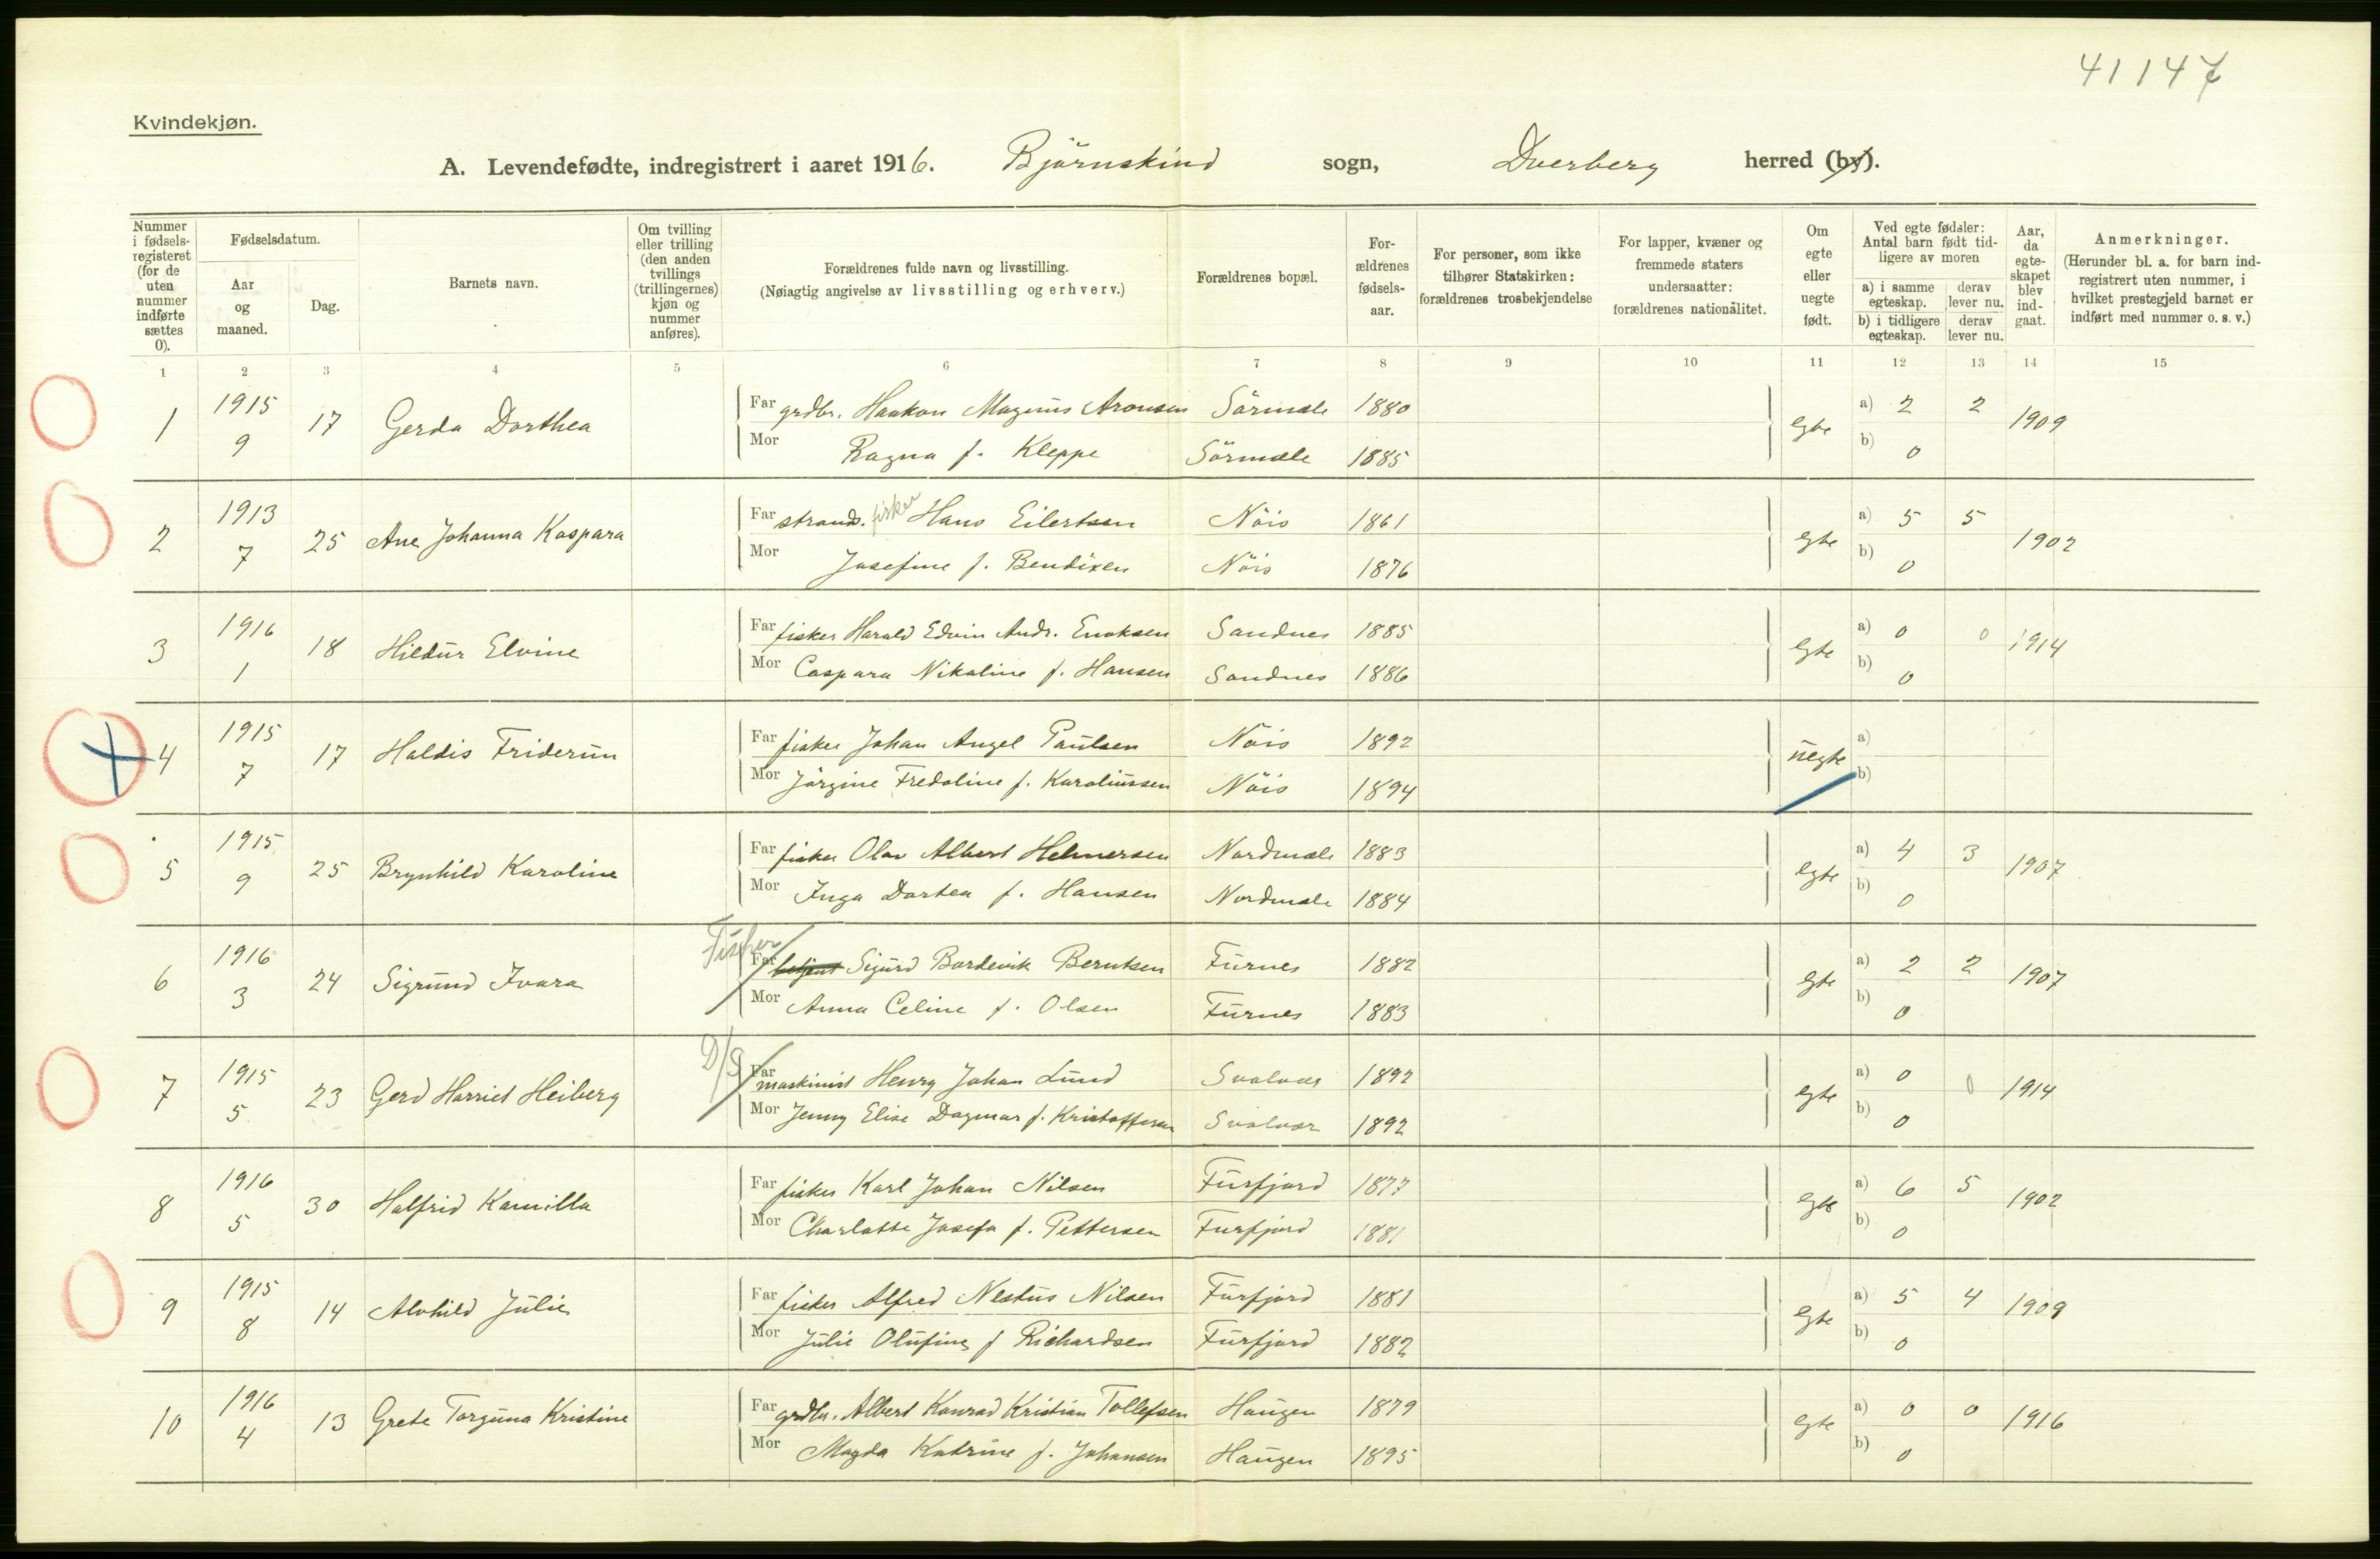 41147
Kvindekjøn.
A. Levendefødte, indregistrert i aaret 1916. Björnskind sogn, Dverberg herred (by).
Nummer i fødsels-registeret (for de uten nummer indførte sættes 0).
Fødselsdatum.
Aar og maaned.
Dag.
Barnets navn.
Om tvilling eller trilling (den anden tvillings (trillingernes) kjøn og nummer anføres).
Forældrenes fulde navn og livsstilling.
(Nøiagtig angivelse av livsstilling og erhverv.)
Forældrenes bopæl.
For-ældrenes fødsels-aar.
For personer, som ikke tilhører Statskirken: forældrenes trosbekjendelse
For lapper, kvæner og fremmede staters undersaatter: forældrenes nationalitet.
Om egte eller uegte født.
Ved egte fødsler: Antal barn født tid-ligere av moren
a) i samme egteskap. derav lever nu.
b) i tidligere egteskap. derav lever nu.
Aar, da egte-skapet blev ind-gaat.
Anmerkninger.
(Herunder bl. a. for barn ind-registrert uten nummer, i hvilket prestegjeld barnet er indført med nummer o. s. v.)
1 2 3 4 5 6 7 8 9 10 11 12 13 14 15
1 1915 9 17 Gerda Dorthea Far grdbr. Haakon Magnus Aronsen Sörmæle 1880 egte a) 2 2 1909
Mor Ragna f. Kleppe Sörmæle 1885 b) 0
2 1913 7 25 Ane Johanna Kaspara Far strands. fisker Hans Eilertsen Nöis 1861 egte a) 5 5 1902
Mor Josefine f. Bendixen Nöis 1876 b) 0
3 1916 1 18 Hildur Elvine Far fisker Harald Edvin Andr. Enoksen Sandnes 1885 egte a) 0 0 1914
Mor Caspara Nikoline f. Hansen Sandnes 1886 b) 0
4 1915 7 17 Haldis Friderun Far fisker Johan Angel Paulsen Nöis 1892 uegte a)
Mor Jörgine Fredoline f. Karoliussen Nöis 1894 b)
5 1915 9 25 Brynhild Karoline Far fisker Olav Albert Helmersen Nordmæle 1883 egte a) 4 3 1907
Mor Inga Dortea f. Hansen Nordmæle 1884 b) 0
6 1916 3 24 Sigrund Ivara Fischer Far betjent Sigurd Bordevik Berntsen Furnes 1882 egte a) 2 2 1907
Mor Anna Celine f. Olsen Furnes 1883 b) 0
7 1915 5 23 Gerd Harriet Heiberg D/S Far maskinist Henry Johan Lund Svolvær 1892 egte a) 0 0 1914
Mor Jenny Elise Dagmar f. Kristoffersen Svolvær 1892 b) 0
8 1916 5 30 Halfrid Kamilla Far fisker Karl Johan Nilsen Furfjord 1877 egte a) 6 5 1902
Mor Charlotte Josefa f. Pettersen Furfjord 1881 b) 0
9 1915 8 14 Alvhild Julie Far fisker Alfred Nestus Nilsen Furfjord 1881 egte a) 5 4 1909
Mor Julie Olufine f Richardsen Furfjord 1882 b) 0
10 1916 4 13 Grete Torguna Kristine Far grdbr. Albert Konrad Kristian Tollefsen Haugen 1879 egte a) 0 0 1916
Mor Magda Katrine f. Johansen Haugen 1895 b) 0